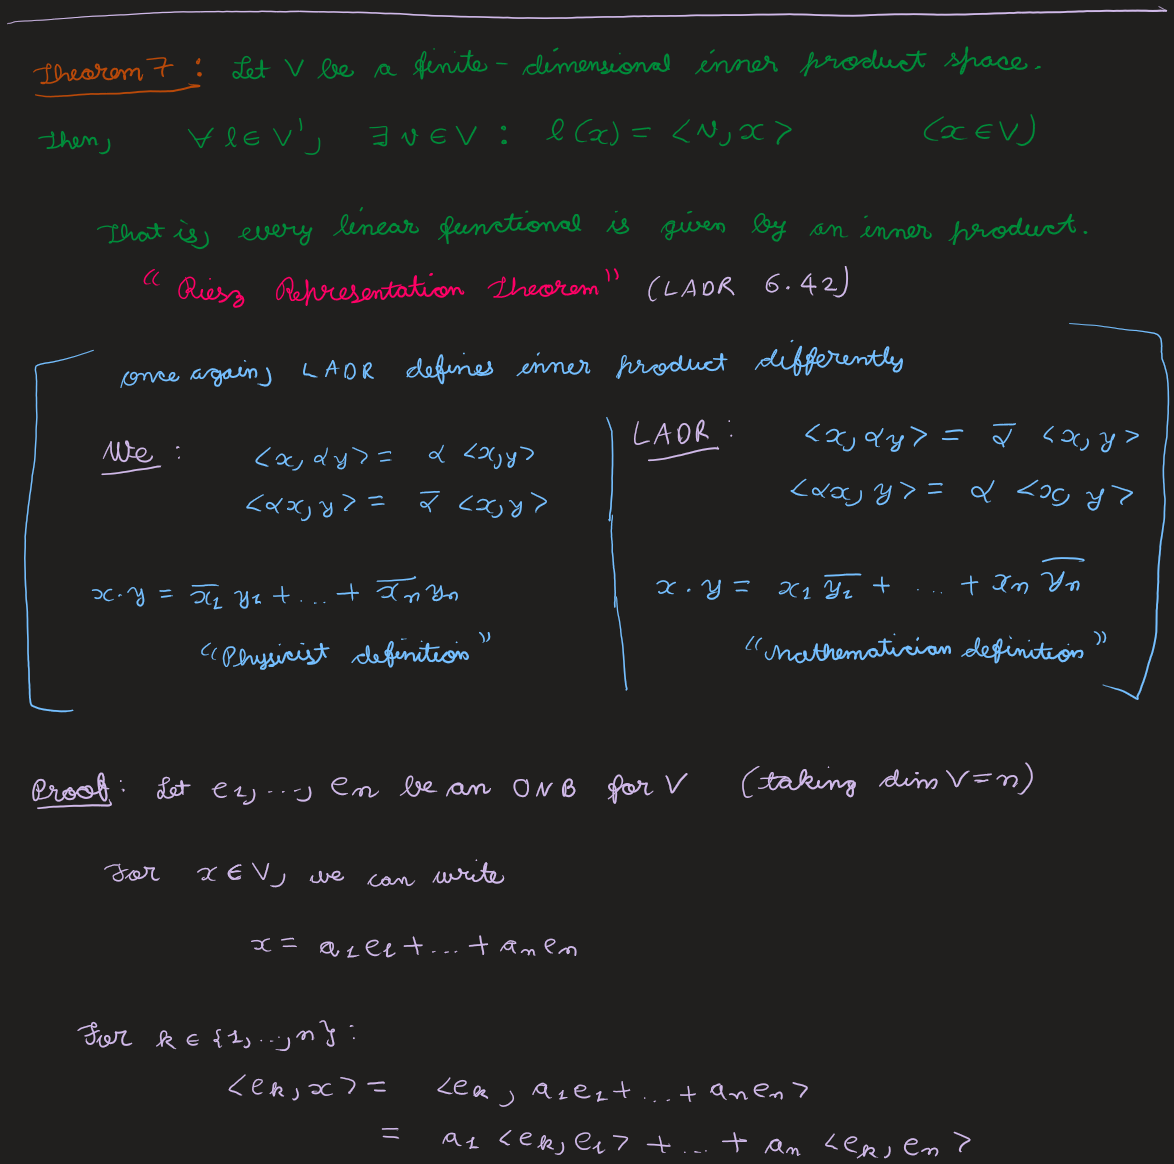 Theorem 7 : Let V be a finite-dimensional inner product space.
Then, ∀ l ∈ V', ∃ v ∈ V : l(x) = <v, x> (x ∈ V)
That is, every linear functional is given by an inner product.
"Riesz Representation Theorem" (LADR 6.42)
once again, LADR defines inner product differently
We :
<x, αy> = α <x,y>
<αx, y> = ᾱ <x,y>
x·y = x̅₁ y₁ + ... + x̅ₙ yₙ
"Physicist definition"
LADR :
<x, αy> = ᾱ <x, y>
<αx, y> = α <x, y>
x·y = x₁ y̅₁ + ... + xₙ y̅ₙ
"Mathematician definition"
Proof : Let e₁, ..., eₙ be an ONB for V (taking dim V = n)
For x ∈ V, we can write
x = a₁e₁ + ... + aₙeₙ
For k ∈ {1, ..., n} :
<eₖ, x> = <eₖ, a₁e₁ + ... + aₙeₙ>
= a₁ <eₖ, e₁> + ... + aₙ <eₖ, eₙ>